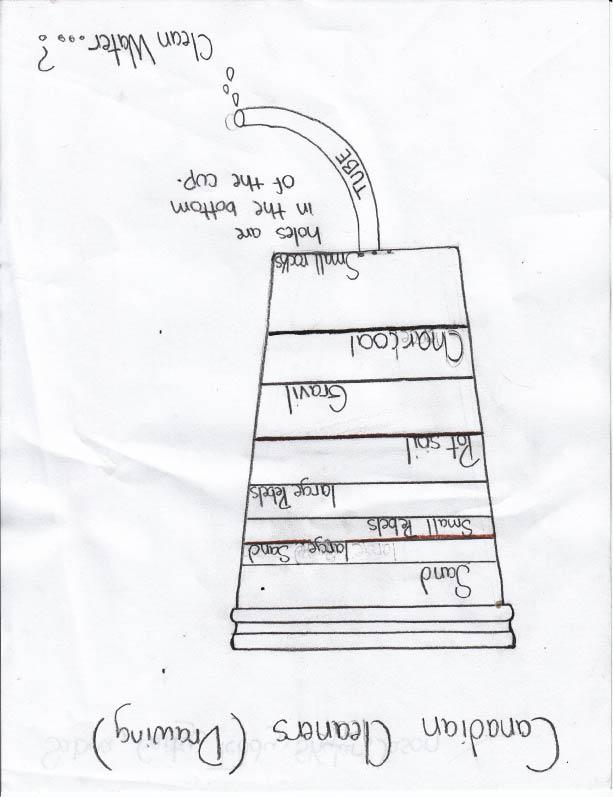 Canadian Cleaners (Drawing)
Sand
large Sand
Small Pebels
large Pebels
Pot soil
Gravil
Charcoal
Small rocks
holes are
in the bottom
of the cup.
TUBE
Clean Water....?